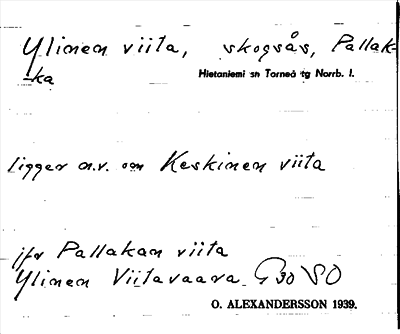 Ylinen viita, skogsås, Pallak-
ka Hietaniemi sn Torneå tg Norrb. l.
ligger n.v. om Keskinen viita
jfr Pallakan viita
Ylinen Viitavaara
O. ALEXANDERSSON 1939.